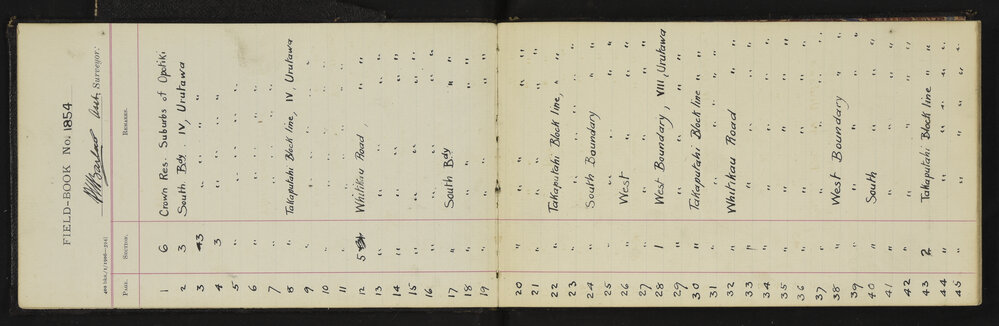 FIELD-BOOK No. 1854
Aut. Surveyor.
PAGE. SECTION. REMARKS.
1 6 Crown Res. Suburbs of Opotiki
2 3 South Bdy. IV, Urutawa
3 3 " " " "
4 3 " " " "
5 " " " " "
6 " " " " "
7 " " " " "
8 " Takaputahi Block line, IV, Urutawa
9 " " " " " "
10 " " " " " "
11 " " " " " "
12 5 Whitikau Road, " "
13 " " " " "
14 " " " " "
15 " " " " "
16 " " " " "
17 " South Bdy " "
18 " " " " "
19 " " " " "
20 " " " " "
21 " " " " "
22 " Takaputahi Block line, " "
23 " " " " " "
24 " South Boundary " "
25 " " " " "
26 " West " " "
27 " " " " "
28 1 West Boundary, VIII, Urutawa
29 " " " " "
30 " Takaputahi Block line " "
31 " " " " " "
32 " Whitikau Road " "
33 " " " " "
34 " " " " "
35 " " " " "
36 " " " " "
37 " " " " "
38 " West Boundary " "
39 " " " " "
40 " South " " "
41 " " " " "
42 " " " " "
43 2 Takaputahi Block line " "
44 " " " " " "
45 " " " " " "